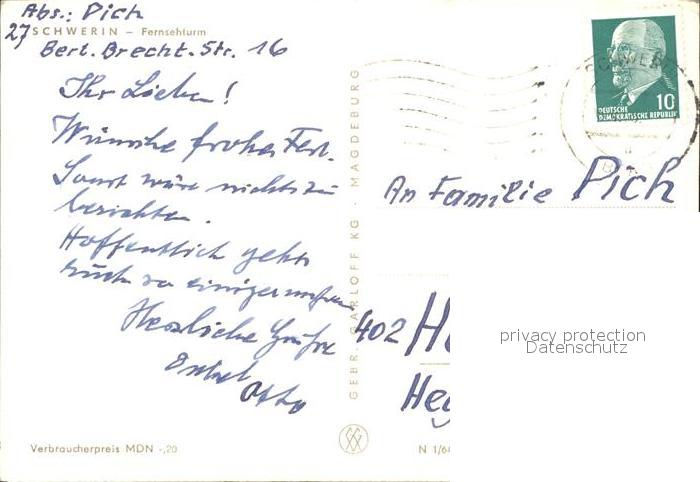 Abs.: Pich
27 SCHWERIN – Fernsehturm
Berl. Brecht. Str. 16
Ihr Lieben!
Wünsche frohes Fest.
Sonst wäre nichts zu
berichten.
Hoffentlich gehts
euch so einigermaßen
Herzliche Grüße
Onkel
Otto
Verbraucherpreis MDN -,20
GEBR. GARLOFF KG · MAGDEBURG
SCHWER
10
DEUTSCHE
DEMOKRATISCHE REPUBLIK
An Familie Pich
402 H
Heg
N 1/6
privacy protection
Datenschutz